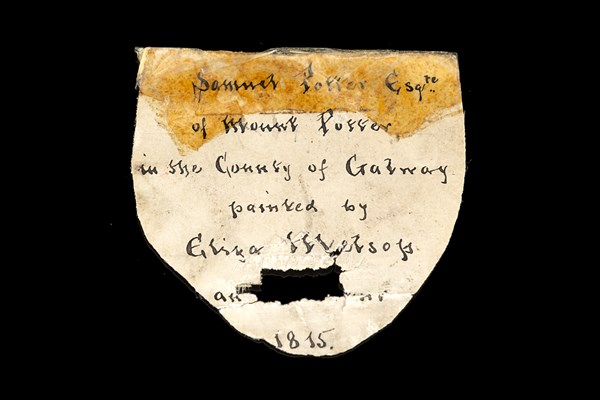 Samuel Potter Esq.re
of Mount Potter
in the County of Galway
painted by
Eliza
an
1815.